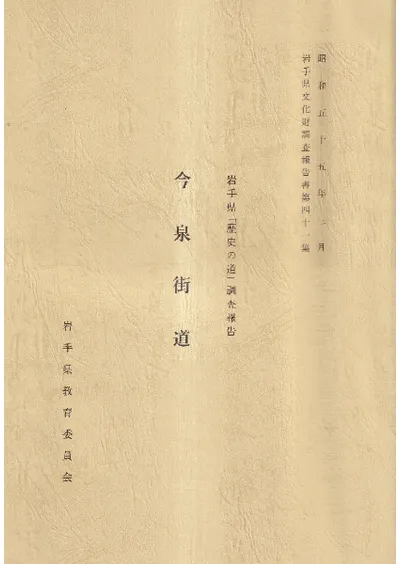 昭和五十五年三月
岩手県文化財調査報告書第四十一集
岩手県「歴史の道」調査報告
今泉街道
岩手県教育委員会